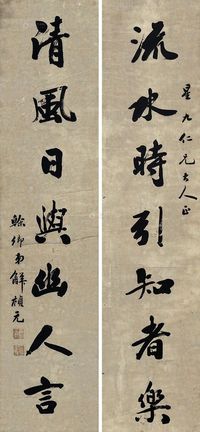 流水時引知者樂
星九仁兄大人正
清風日與幽人言
解楨元